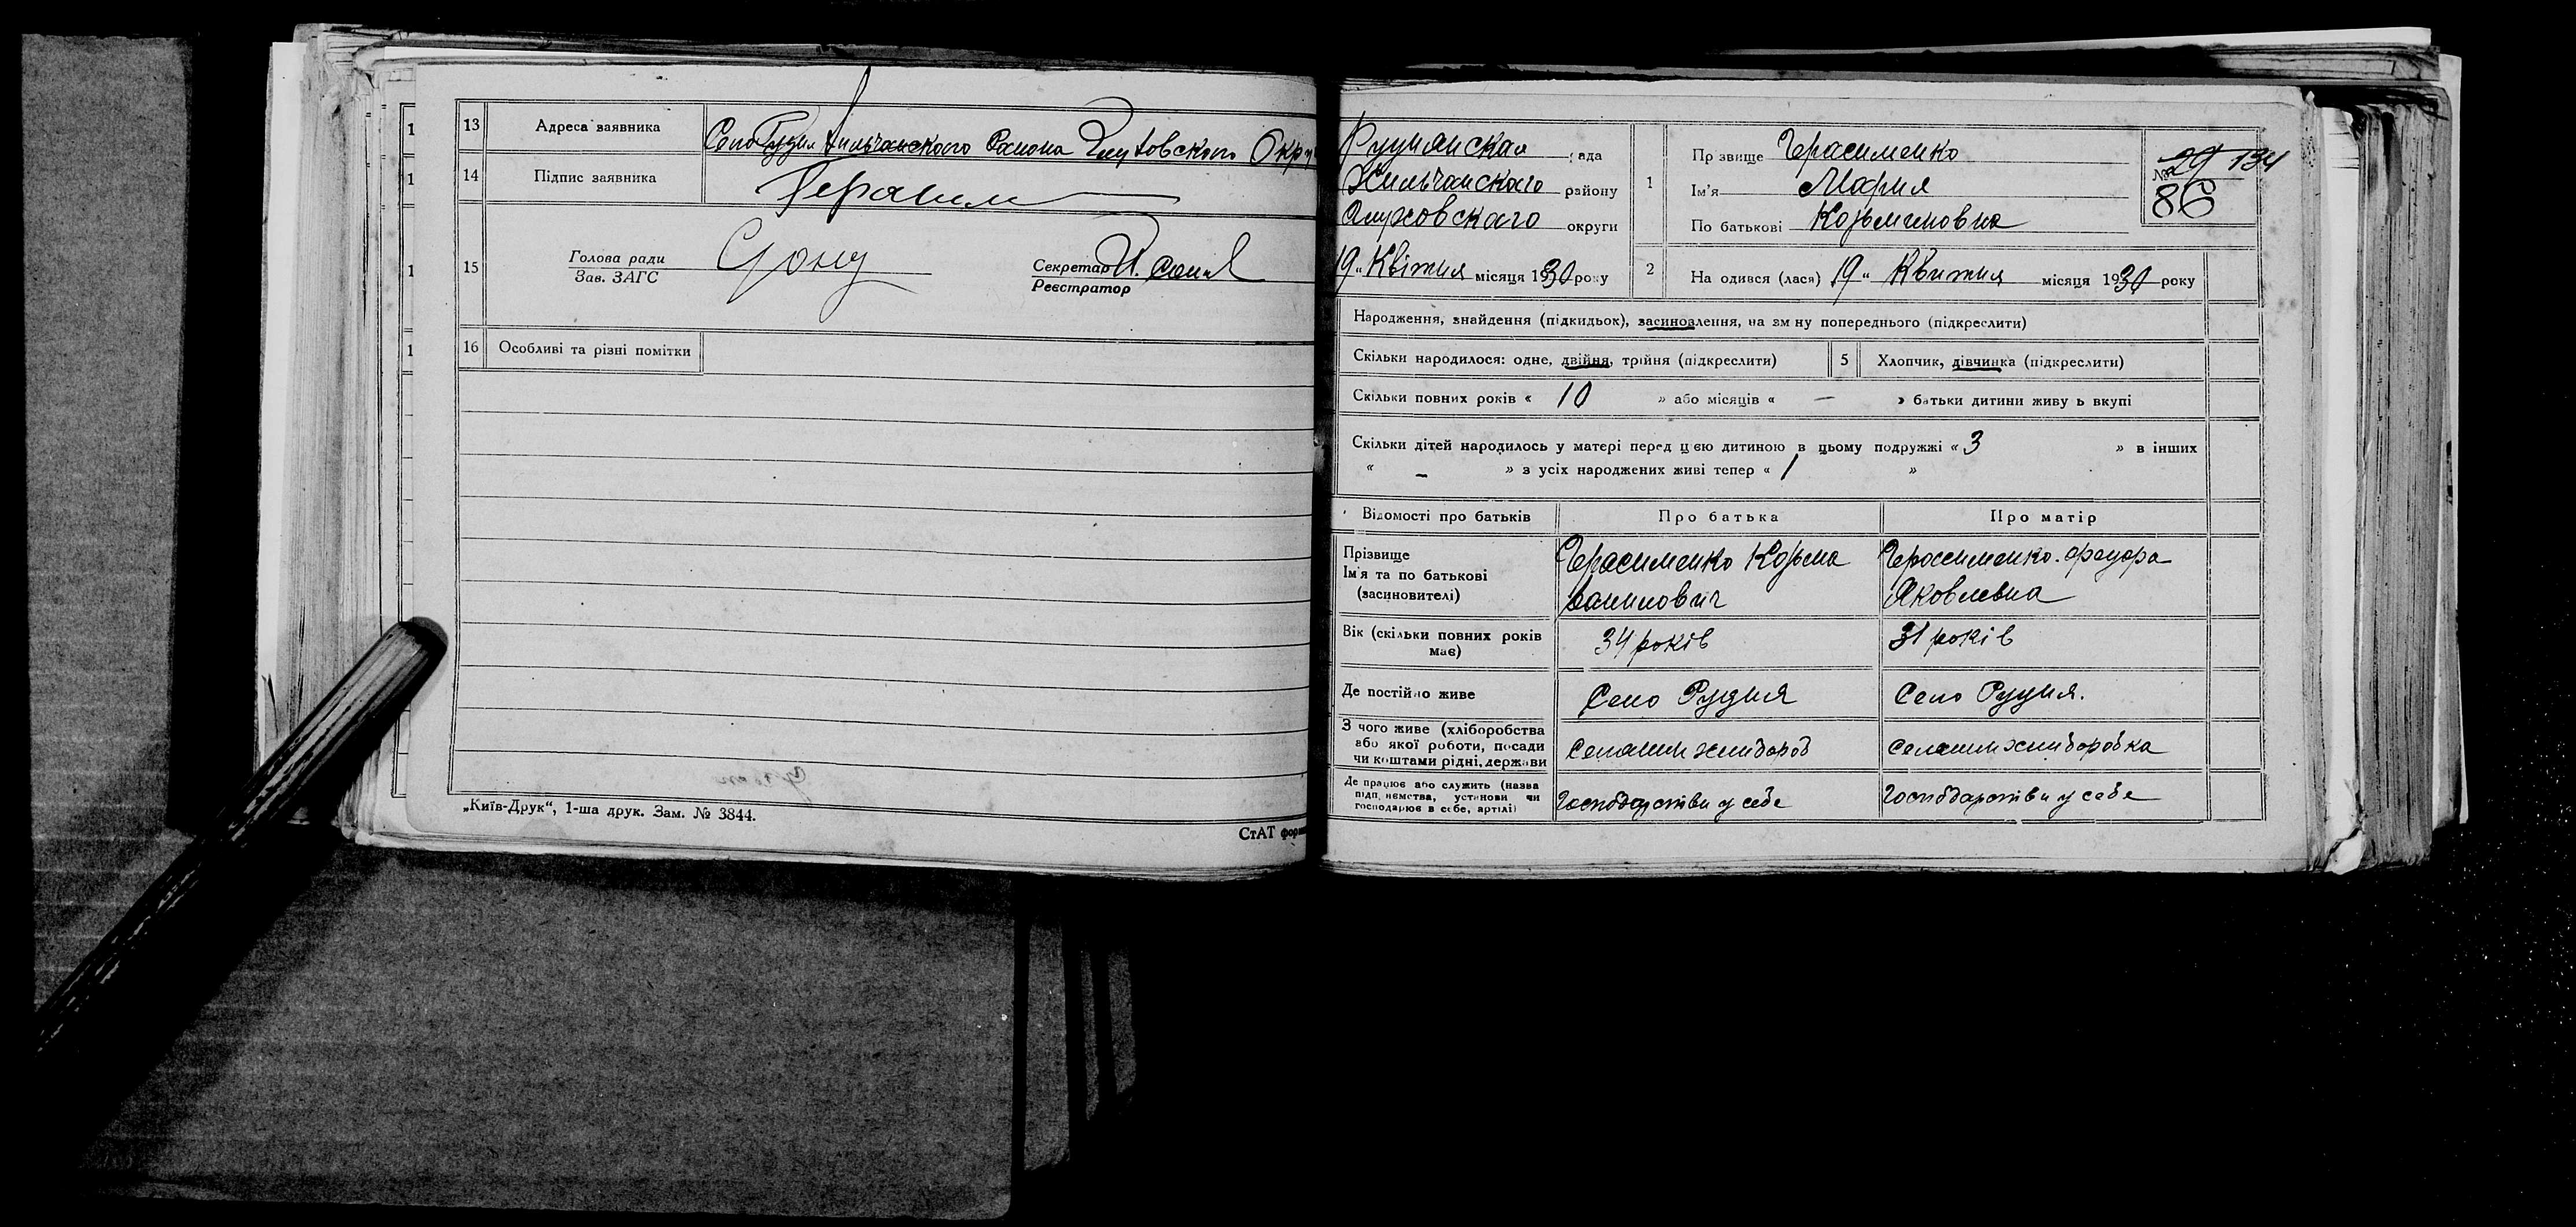 13 Адреса заявника Село Рудня Хильчанского Района Глуховского Окр
14 Підпис заявника Герасим
15 Голова ради
Зав. ЗАГС
Секретар
Реєстратор
16 Особливі та різні помітки
„Київ-Друк“, 1-ша друк. Зам. № 3844.
СтАТ фор
Руднянская рада
Хильчанского району
Глуховского округи
19 „ Квітня місяця 1930 року
1 Прізвище Герасименко
Ім'я Мария
По батькові Козьминовна
№ 29 134
86
2 Народився (лася) 19 „ Квитня місяця 1930 року
Народження, знайдення (підкидьок), засиновлення, на зміну попереднього (підкреслити)
Скільки народилося: одне, двійня, трійня (підкреслити) 5 Хлопчик, дівчинка (підкреслити)
Скільки повних років « 10 » або місяців « — » батьки дитини живуть вкупі
Скільки дітей народилось у матері перед цією дитиною в цьому подружжі « 3 » в інших
« – » з усіх народжених живі тепер « 1 »
Відомості про батьків Про батька Про матір
Прізвище
Ім'я та по батькові
(засиновителі)
Герасименко Козьма
Герасименко. Федора
Яковлевна
Вік (скільки повних років
має)
34 років 31 років
Де постійно живе Село Рудня Село Рудня.
З чого живе (хліборобства
або якої роботи, посади
чи коштами рідні, держави
Селянин хлибороб Селянин хлиборобка
Де працює або служить (назва
підприємства, установи чи
господарює в себе, артілі)
Господарстви у себе Господарстви у себе